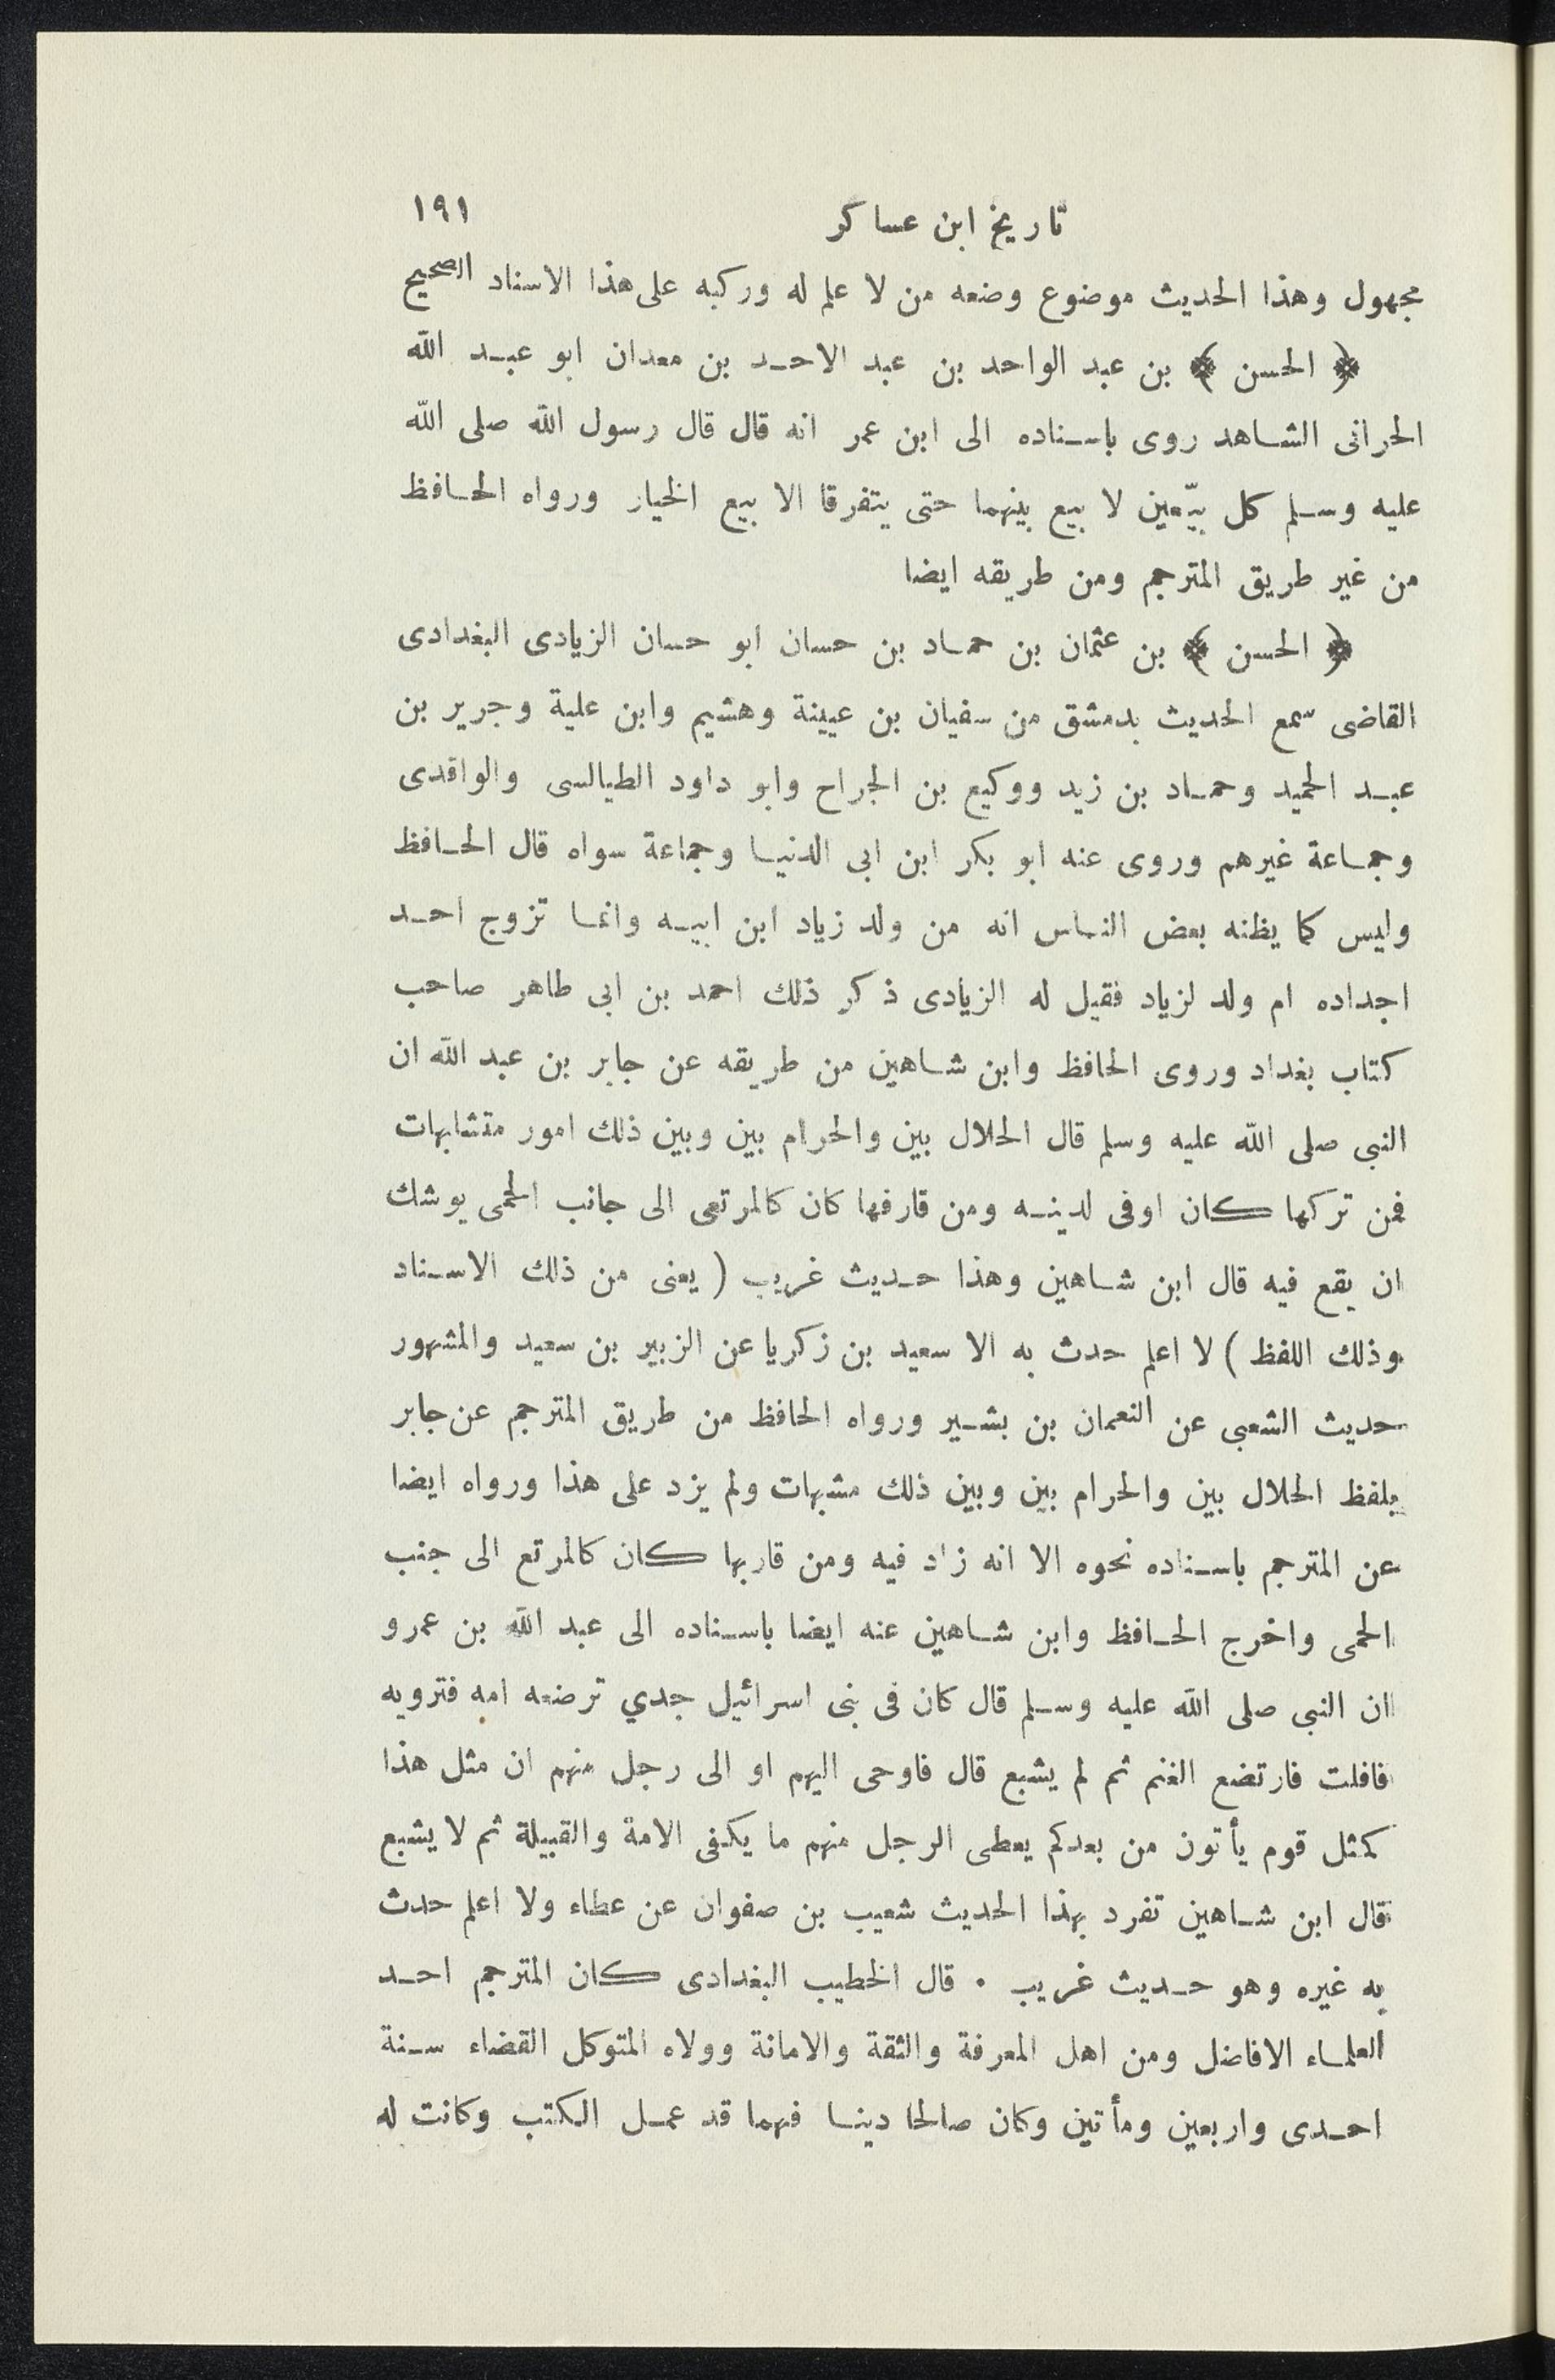 تاريخ ابن عساكر ١٩١
مجهول وهذا الحديث موضوع وضعه من لا علم له وركبه على هذا الاسناد الصحيح
﴿ الحسن ﴾ بن عبد الواحد بن عبد الاحد بن معدان ابو عبد الله
الحرانى الشاهد روى باسناده الى ابن عمر انه قال قال رسول الله صلى الله
عليه وسلم كل بيّعين لا بيع بينهما حتى يتفرقا الا بيع الخيار ورواه الحافظ
من غير طريق المترجم ومن طريقه ايضا
﴿ الحسن ﴾ بن عثمان بن حماد بن حسان ابو حسان الزيادى البغدادى
القاضى سمع الحديث بدمشق من سفيان بن عيينة وهشيم وابن علية وجرير بن
عبد الحميد وحماد بن زيد ووكيع بن الجراح وابو داود الطيالسى والواقدى
وجماعة غيرهم وروى عنه ابو بكر ابن ابى الدنيا وجماعة سواه قال الحافظ
وليس كما يظنه بعض الناس انه من ولد زياد ابن ابيه وانما تزوج احد
اجداده ام ولد لزياد فقيل له الزيادى ذكر ذلك احمد بن ابى طاهر صاحب
كتاب بغداد وروى الحافظ وابن شاهين من طريقه عن جابر بن عبد الله ان
النبى صلى الله عليه وسلم قال الحلال بين والحرام بين وبين ذلك امور متشابهات
فمن تركها كان اوفى لدينه ومن قارفها كان كالمرتعى الى جانب الحمى يوشك
ان يقع فيه قال ابن شاهين وهذا حديث غريب ( يعنى من ذلك الاسناد
وذلك اللفظ ) لا اعلم حدث به الا سعيد بن زكريا عن الزبير بن سعيد والمشهور
حديث الشعبى عن النعمان بن بشير ورواه الحافظ من طريق المترجم عن جابر
بلفظ الحلال بين والحرام بين وبين ذلك مشبهات ولم يزد على هذا ورواه ايضا
عن المترجم باسناده نحوه الا انه زاد فيه ومن قاربها كان كالمرتع الى جنب
الحمى واخرج الحافظ وابن شاهين عنه ايضا باسناده الى عبد الله بن عمرو
ان النبى صلى الله عليه وسلم قال كان فى بنى اسرائيل جدي ترضعه امه فترويه
فافلت فارتضع الغنم ثم لم يشبع قال فاوحى اليهم او الى رجل منهم ان مثل هذا
كمثل قوم يأتون من بعدكم يعطى الرجل منهم ما يكفى الامة والقبيلة ثم لا يشبع
قال ابن شاهين تفرد بهذا الحديث شعيب بن صفوان عن عطاء ولا اعلم حدث
به غيره وهو حديث غريب . قال الخطيب البغدادى كان المترجم احد
العلماء الافاضل ومن اهل المعرفة والثقة والامانة وولاه المتوكل القضاء سنة
احدى واربعين ومأتين وكان صالحا دينا فهما قد عمل الكتب وكانت له